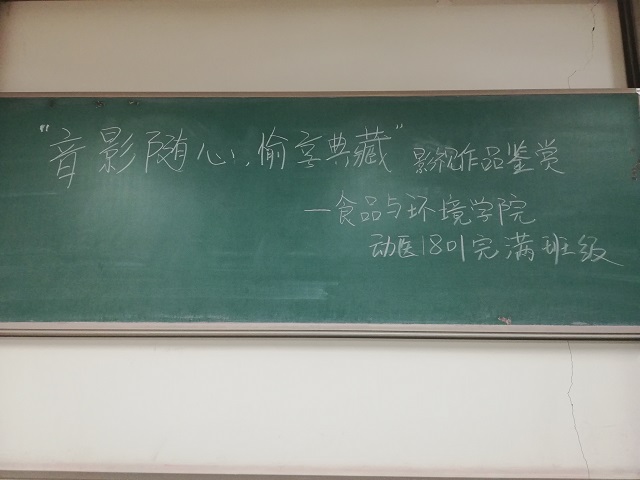 “音影随心,愉享典藏”影视作品鉴赏
—食品与环境学院
动医1801完满班级